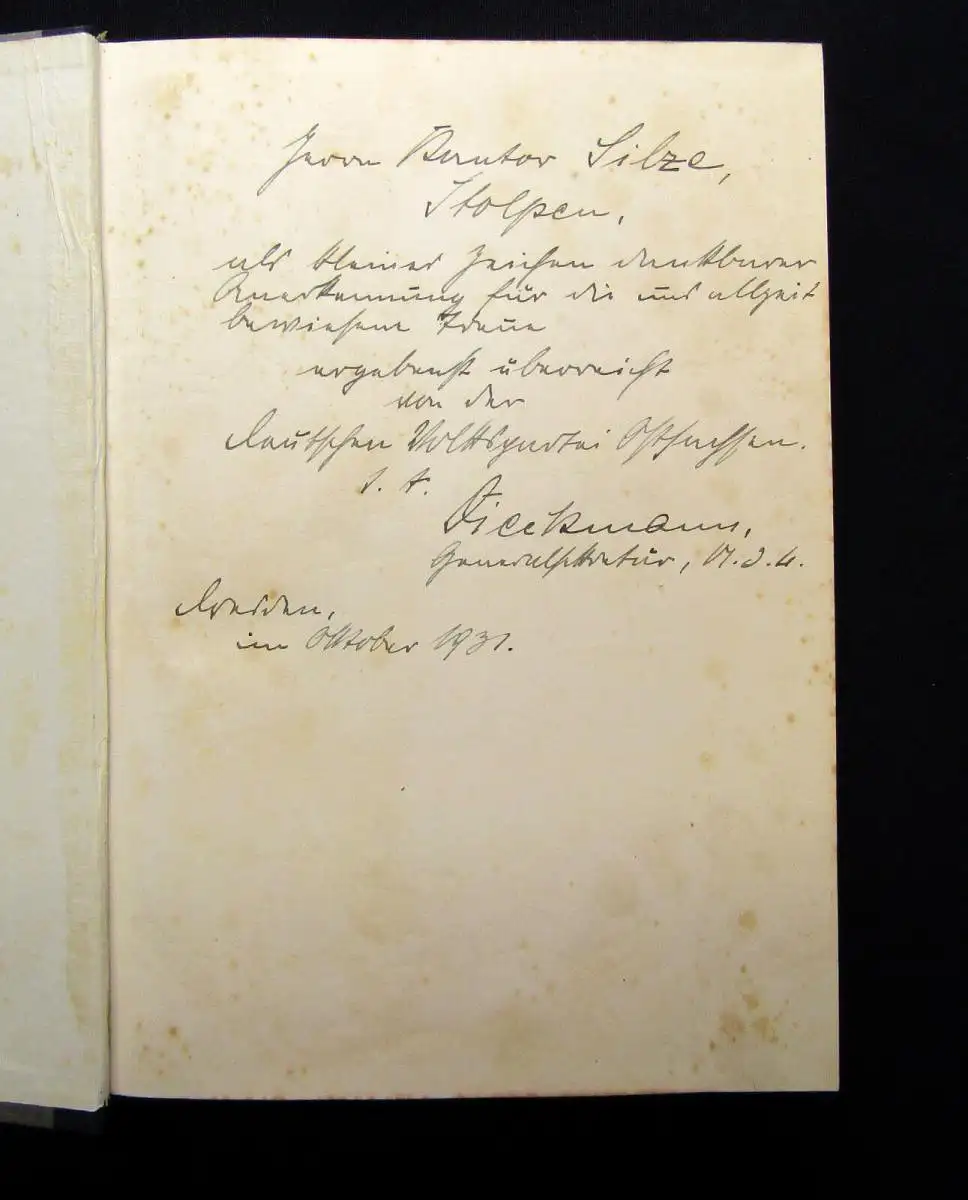 Herrn Kantor Silze,
Stolpen,
als kleines Zeichen dankbarer
Anerkennung für die uns allzeit
bewiesene Treue
ergebenst überreicht
von der
Deutschen Volkspartei Ostsachsen.
Dieckmann,
Generalsekretär, M.d.L.
Dresden,
im Oktober 1931.